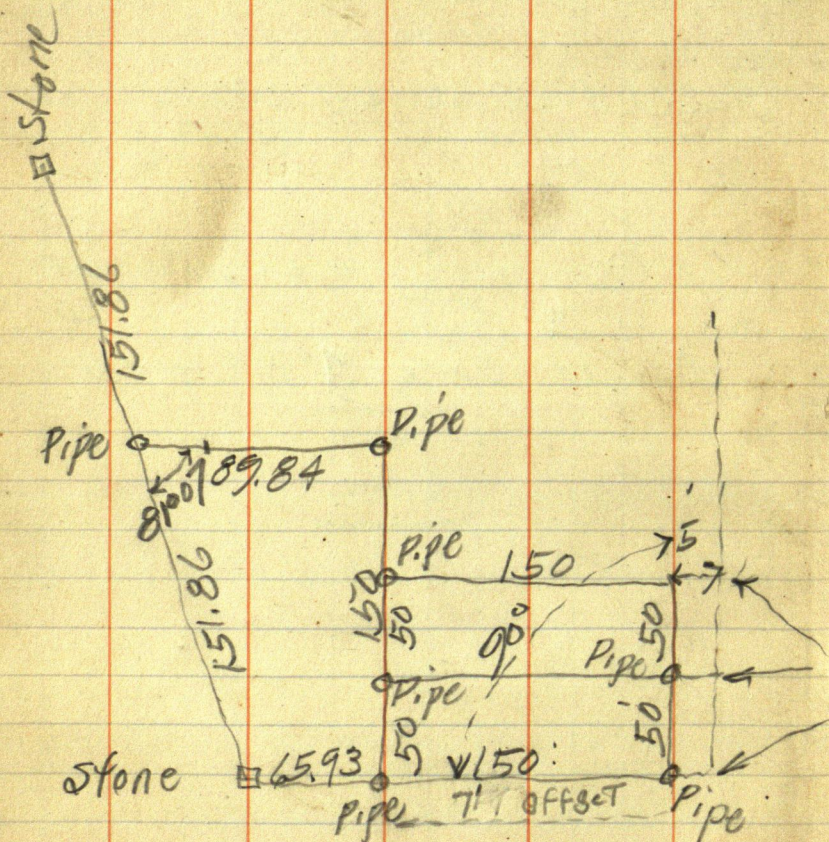 Stone
151.86
Pipe
Pipe
89.84
81°01'
Pipe
150
5
7
151.86
150
50
90°
50
Pipe
Pipe
50
50
Stone
65.93
150
Pipe
7' offset
Pipe